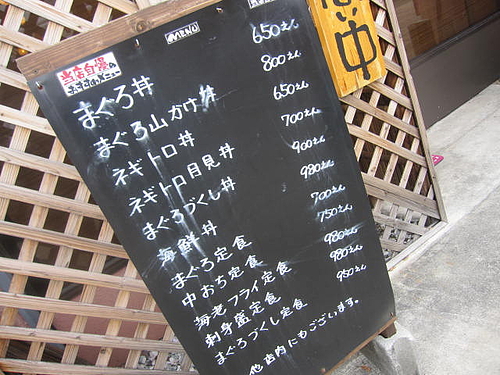 当店自慢の
おすすめメニュー
MENU
まぐろ丼 650えん
まぐろ山かけ丼 800えん
ネギトロ丼 650えん
ネギトロ月見丼 700えん
まぐろづくし丼 900えん
海鮮丼 980えん
まぐろ定食 700えん
中おち定食 750えん
海老フライ定食 980えん
刺身盛定食 980えん
まぐろづくし定食 950えん
他店内にもございます。
い中